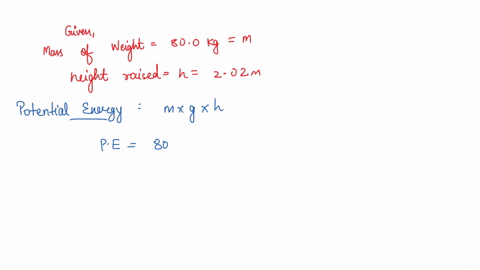 Given,
Mass of Weight = 80.0 kg = m
height raised = h = 2.02m
Potential Energy : m x g x h
P.E = 80